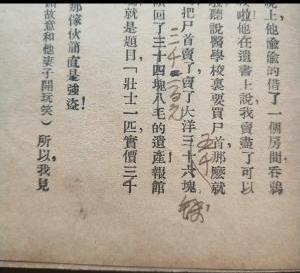 晚上他偸偸的借了一個房間吞鴉
啦他在遺書上說我賣盡了可以
聽說醫學校裏要買尸首那麼就
把尸首賣了賣了大洋三十六塊
五千
錢
回了三十四塊八毛的遺產報館
二千一百元
就是題目「壯士一匹實價三千
那傢伙請直是強盜!
故意和他妻子開玩笑)所以,我見